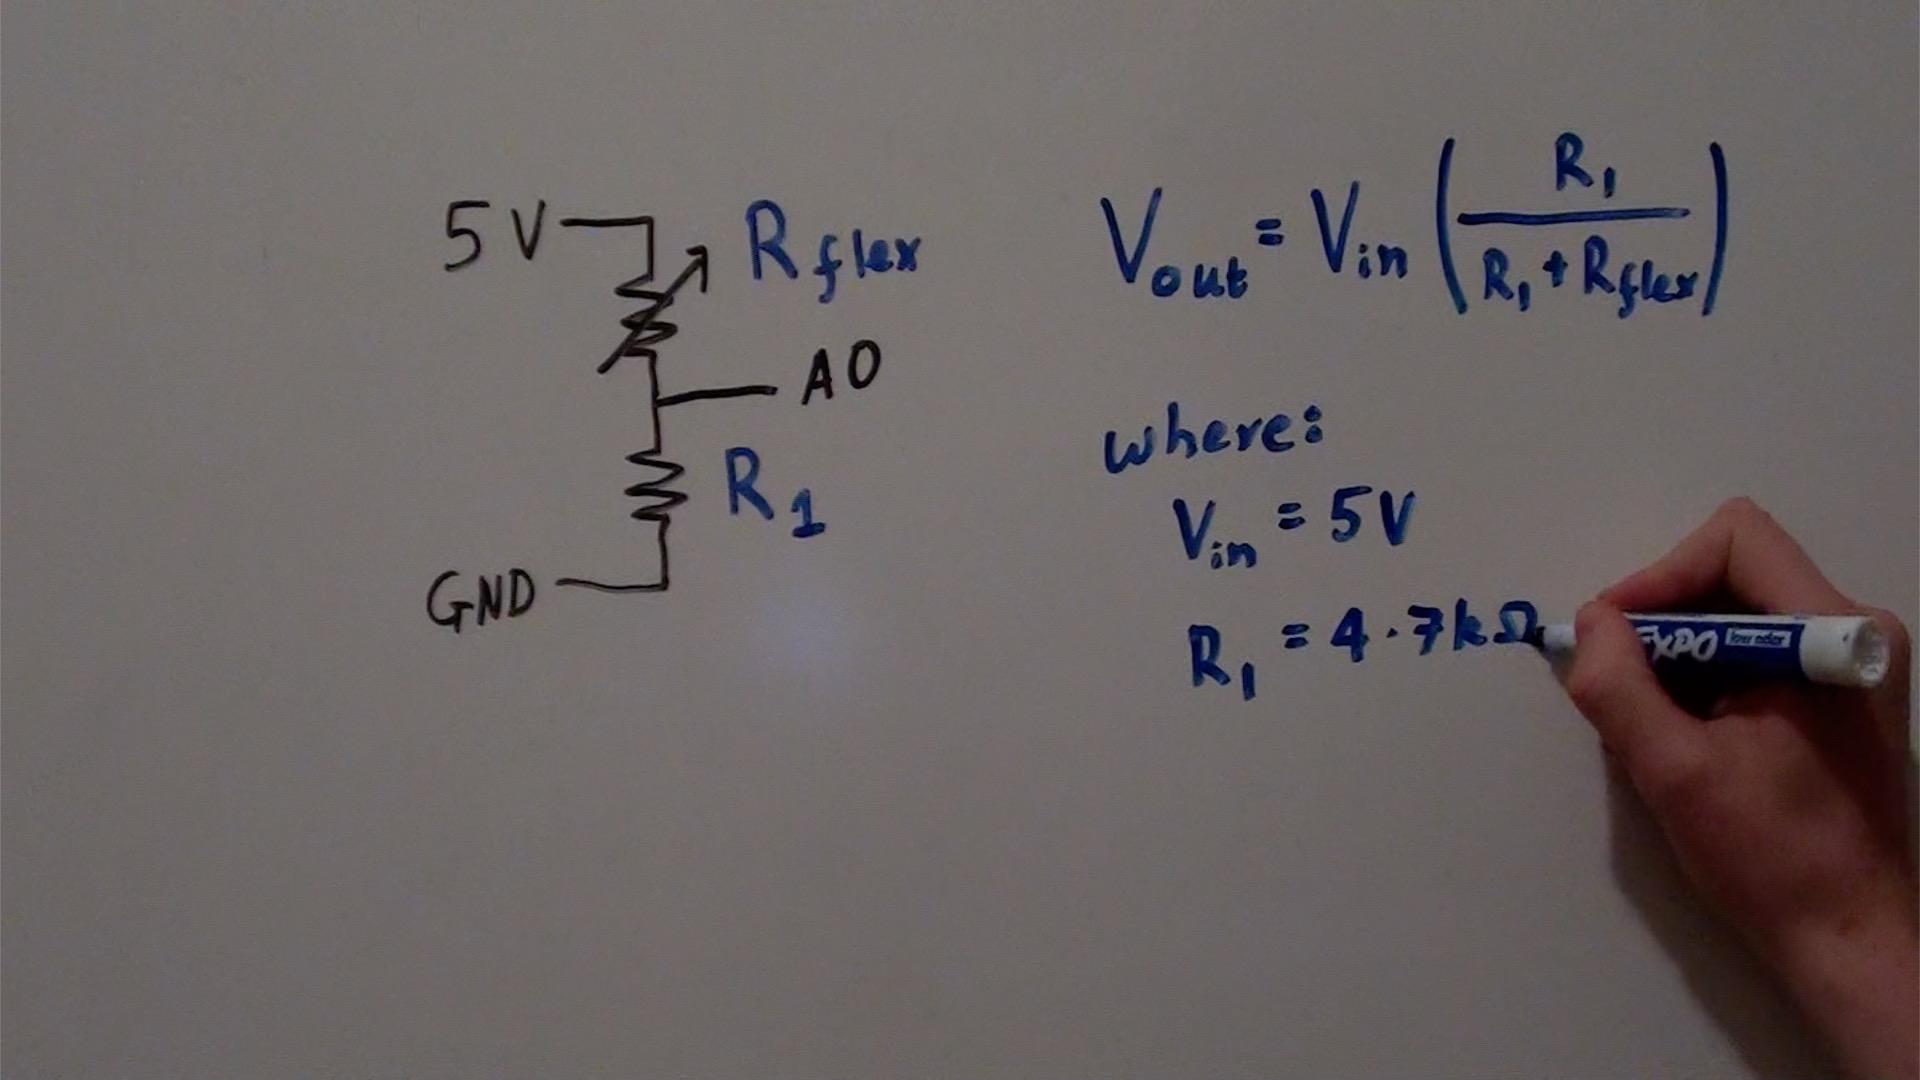 5V
R flex
A0
R1
GND
Vout = Vin (R1 / (R1 + Rflex))
where:
Vin = 5V
R1 = 4.7kΩ
EXPO low odor